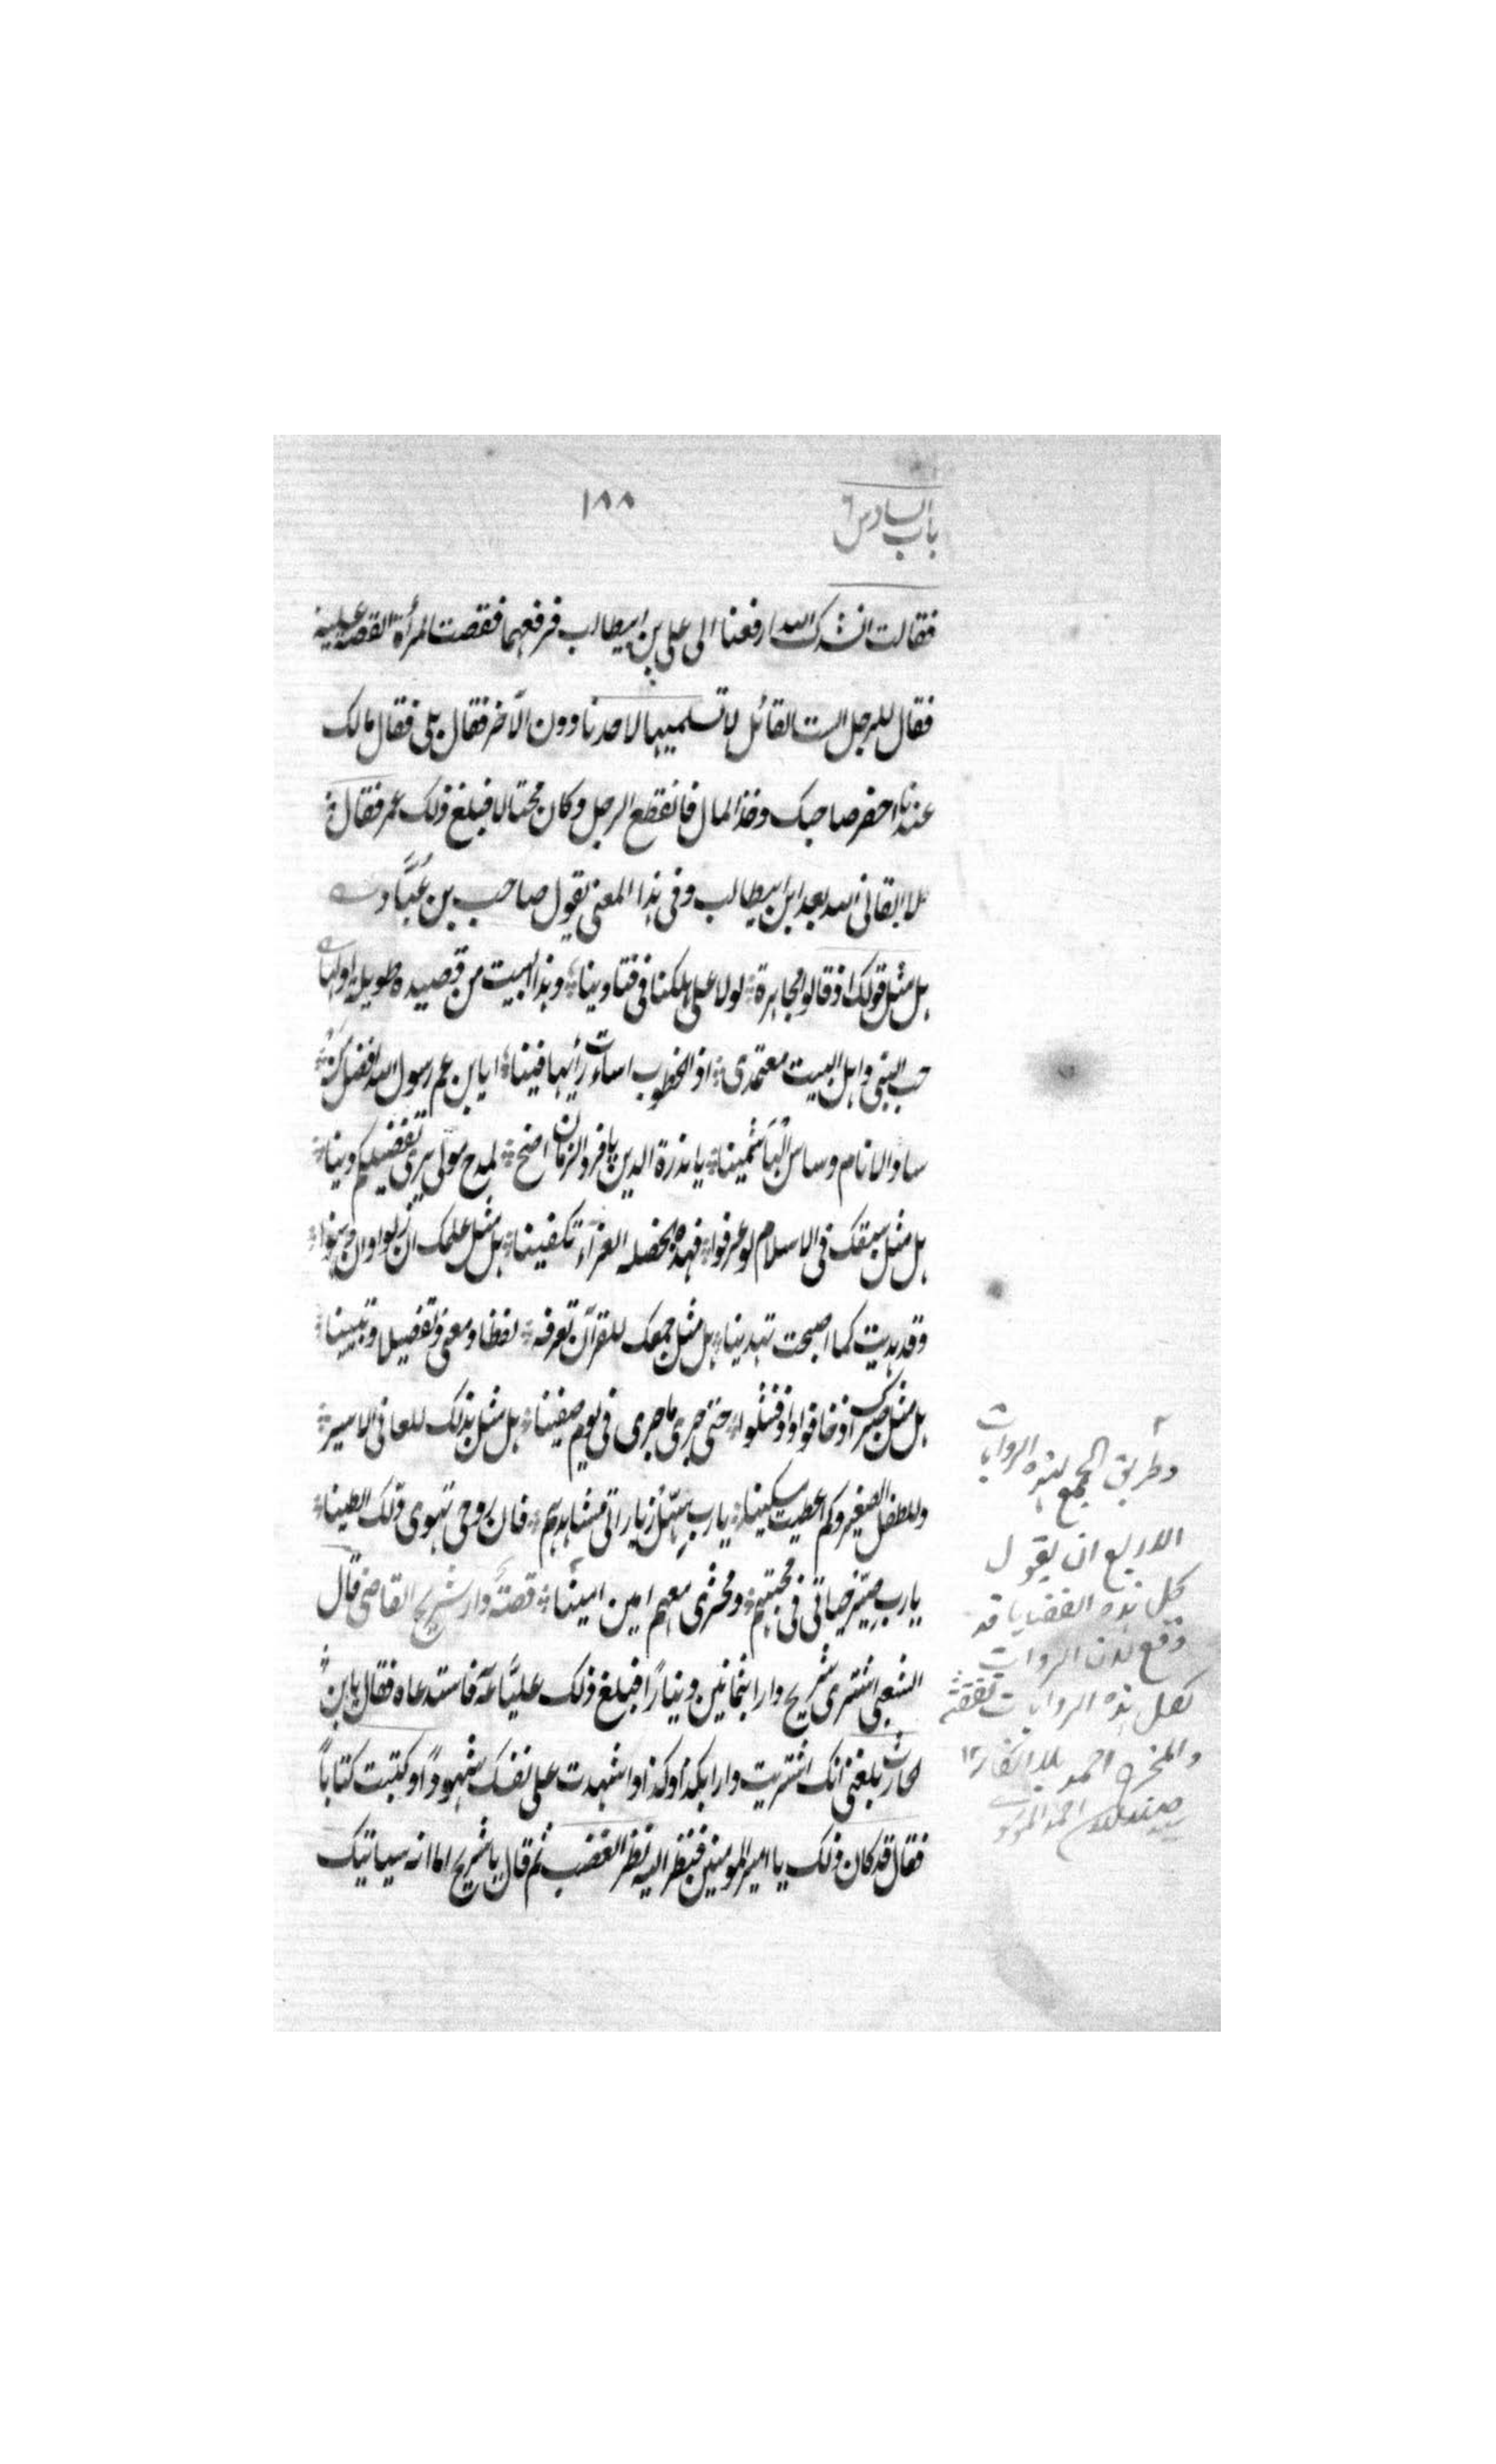 ١٨٨
باب السادس
فقالت انشدك الله ارفعنا الى على بن ابيطالب فرفعهما فقصت المرأة القصة عليه
فقال للرجل الست القائل لا تسلميها لاحدنا دون الآخر فقال بلى فقال مالك
عندنا احضر صاحبك وخذ المال فانقطع الرجل وكان محتالا فبلغ ذلك عمر فقال
لا ابقانى الله بعد ابن ابيطالب وفى هذا المعنى يقول صاحب بن عُبّاد
هل مثل قولك اذ قالوا مجاهرة لولا على هلكنا فى فتاوينا وهذا البيت من قصيده طويله اولها
حب النبى واهل البيت معتمدى اذ الخطوب اساءت رأيها فينا ايا بن عم رسول الله افضل
ساد الانام وساس الهاشمينا يا ندرة الدين يا فرد الزمان اضخ لمدح مولى يرى تفضيلكم دينا
هل مثل سبقك فى الاسلام لو عرفوا فهذه الخصله الغراء تكفينا هل مثل علمك ان زلوا وان وهنوا
وقد هديت كما اصبحت تهدينا هل مثل جمعك للقرآن تعرفه لفظا ومعنى وتفصيلا وتبيينا
هل مثل صبرك اذ خافوا واذ فشلوا حتى جرى ما جرى فى يوم صفينا هل مثل بذلك للعافى الاسير
وللطفل الصغير وكم اعطيت مسكينا يا رب سهّل زياراتى مشاهدهم فان روحى تهوى ذلك الطينا
يا رب صيّر حياتى فى محبتهم ومحشرى معهم امين امينا قصة دار شريح القاضى قال
الشعبى اشترى شريح دارا بثمانين دينارًا فبلغ ذلك عليًّا فاستدعاه فقال يا بن
الحارث بلغنى انك اشتريت دارا بكذا وكذا واشهدت على نفسك شهودًا وكتبت كتابًا
فقال قد كان ذلك يا امير المومنين فنظر اليه نظر الغضب ثم قال يا شريح اما انه سياتيك
وطريق الجمع لهذه الروايات
الاربع ان يقول
كل هذه القضايا قد
وقع لان الروات
لعل هذه الروايات ثقة
والمخرج احمد